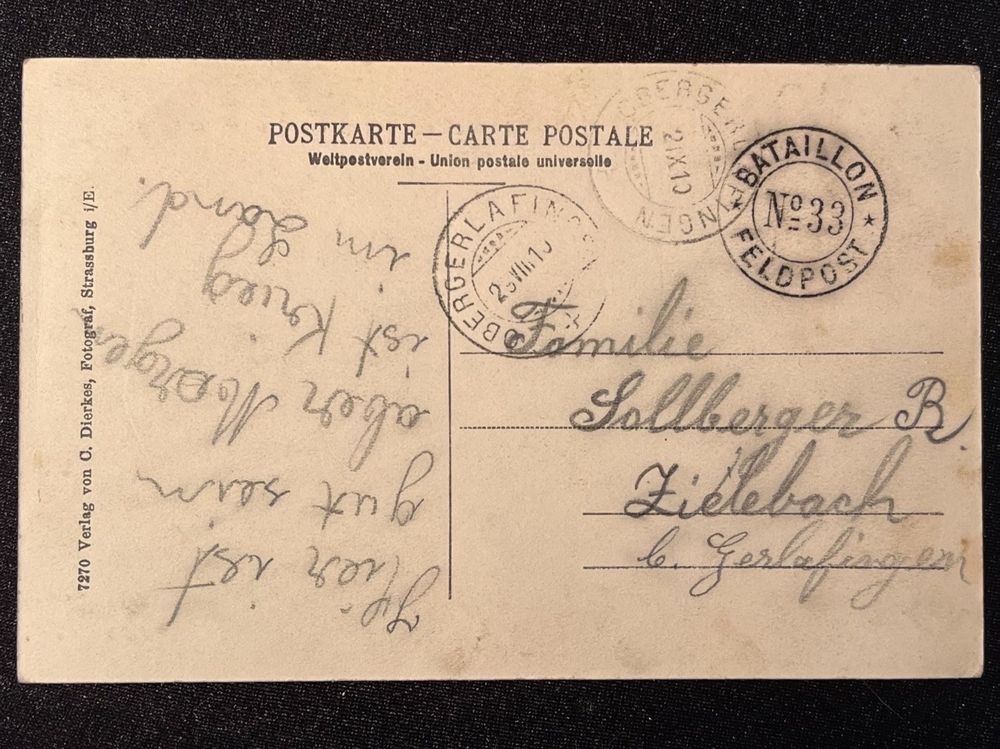 POSTKARTE — CARTE POSTALE
Weltpostverein - Union postale universelle
OBERGERLAFINGEN
21X10
BATAILLON
No 33
FELDPOST
OBERGERLAFINGEN
Familie
Sollberger R.
Zielebach
b. Gerlafingen
Hier ist
gut sein
aber Morgen
ist Krieg
im Land.
7270 Verlag von C. Dierkes, Fotograf, Strassburg i/E.